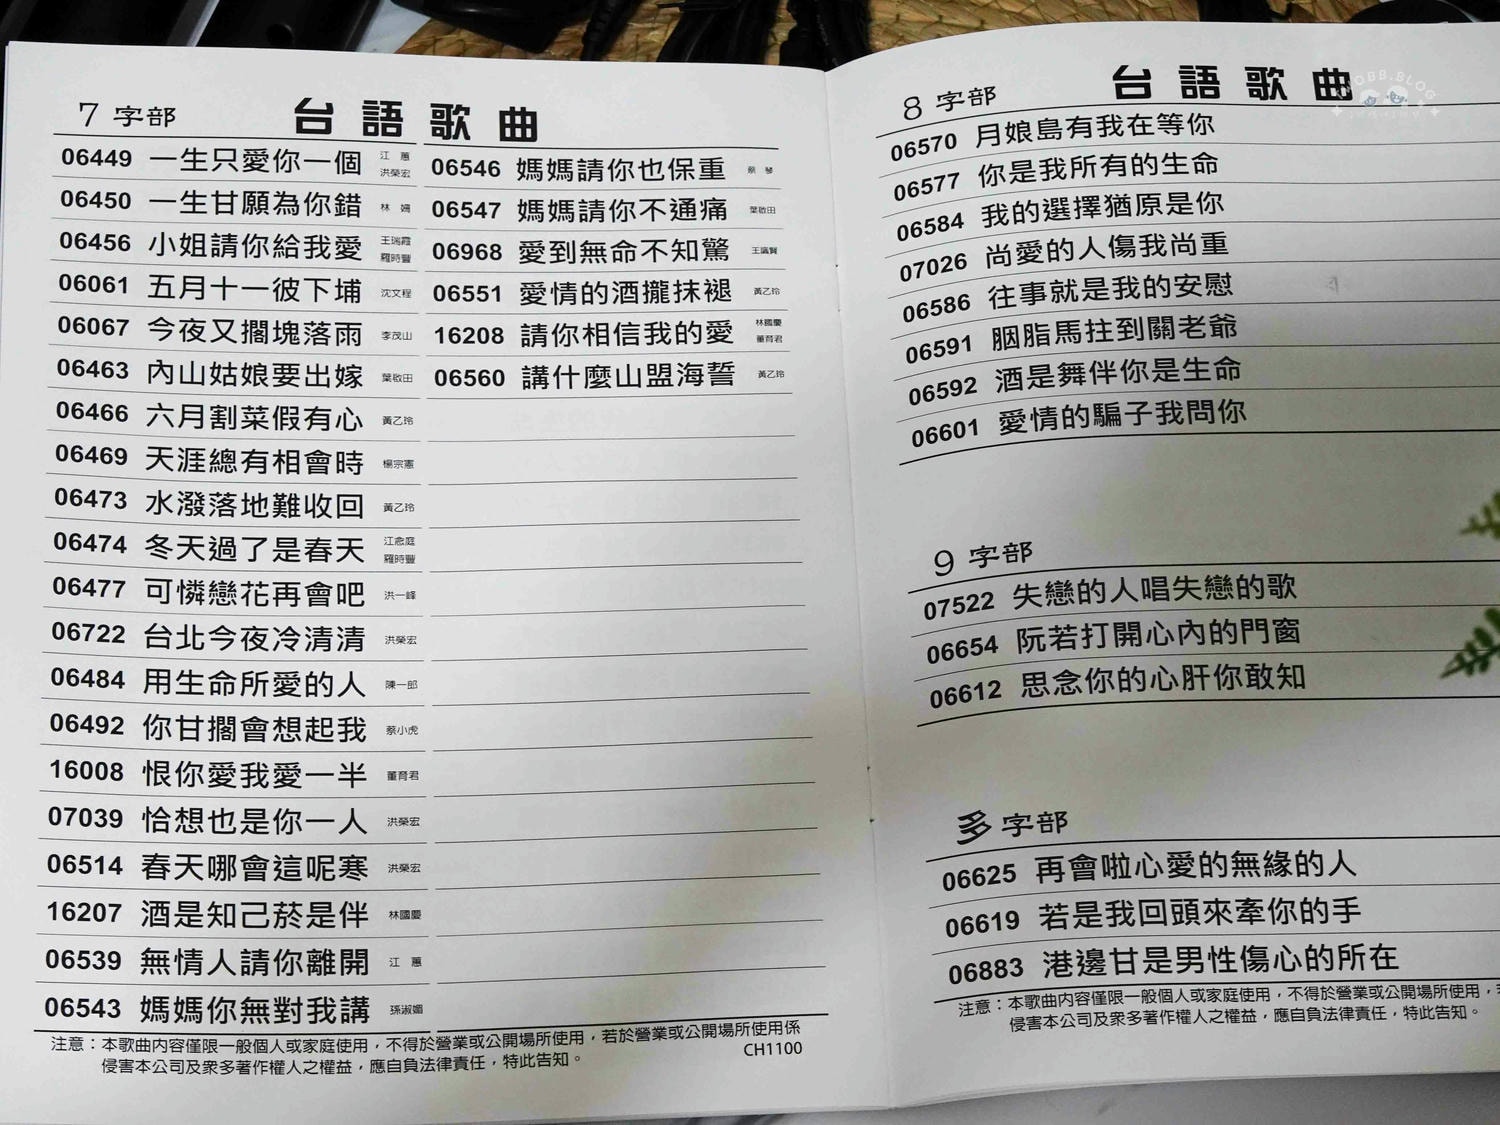 7 字部
台語歌曲
06449 一生只愛你一個 江蕙 洪榮宏
06450 一生甘願為你錯 林姍
06456 小姐請你給我愛 王瑞霞 羅時豐
06061 五月十一彼下埔 沈文程
06067 今夜又擱塊落雨 李茂山
06463 內山姑娘要出嫁 葉啟田
06466 六月割菜假有心 黃乙玲
06469 天涯總有相會時 楊宗憲
06473 水潑落地難收回 黃乙玲
06474 冬天過了是春天 江念庭 羅時豐
06477 可憐戀花再會吧 洪一峰
06722 台北今夜冷清清 洪榮宏
06484 用生命所愛的人 陳一郎
06492 你甘擱會想起我 蔡小虎
16008 恨你愛我愛一半 董育君
07039 恰想也是你一人 洪榮宏
06514 春天哪會這呢寒 洪榮宏
16207 酒是知己菸是伴 林國慶
06539 無情人請你離開 江蕙
06543 媽媽你無對我講 孫淑媚
06546 媽媽請你也保重 蔡琴
06547 媽媽請你不通痛 葉啟田
06968 愛到無命不知驚 王識賢
06551 愛情的酒攏抹褪 黃乙玲
16208 請你相信我的愛 林國慶 董育君
06560 講什麼山盟海誓 黃乙玲
注意：本歌曲內容僅限一般個人或家庭使用，不得於營業或公開場所使用，若於營業或公開場所使用係
侵害本公司及眾多著作權人之權益，應自負法律責任，特此告知。
CH1100
8 字部
台語歌曲
06570 月娘島有我在等你
06577 你是我所有的生命
06584 我的選擇猶原是你
07026 尚愛的人傷我尚重
06586 往事就是我的安慰
06591 胭脂馬拄到關老爺
06592 酒是舞伴你是生命
06601 愛情的騙子我問你
9 字部
07522 失戀的人唱失戀的歌
06654 阮若打開心內的門窗
06612 思念你的心肝你敢知
多字部
06625 再會啦心愛的無緣的人
06619 若是我回頭來牽你的手
06883 港邊甘是男性傷心的所在
注意：本歌曲內容僅限一般個人或家庭使用，不得於營業或公開場所使用，
侵害本公司及眾多著作權人之權益，應自負法律責任，特此告知。